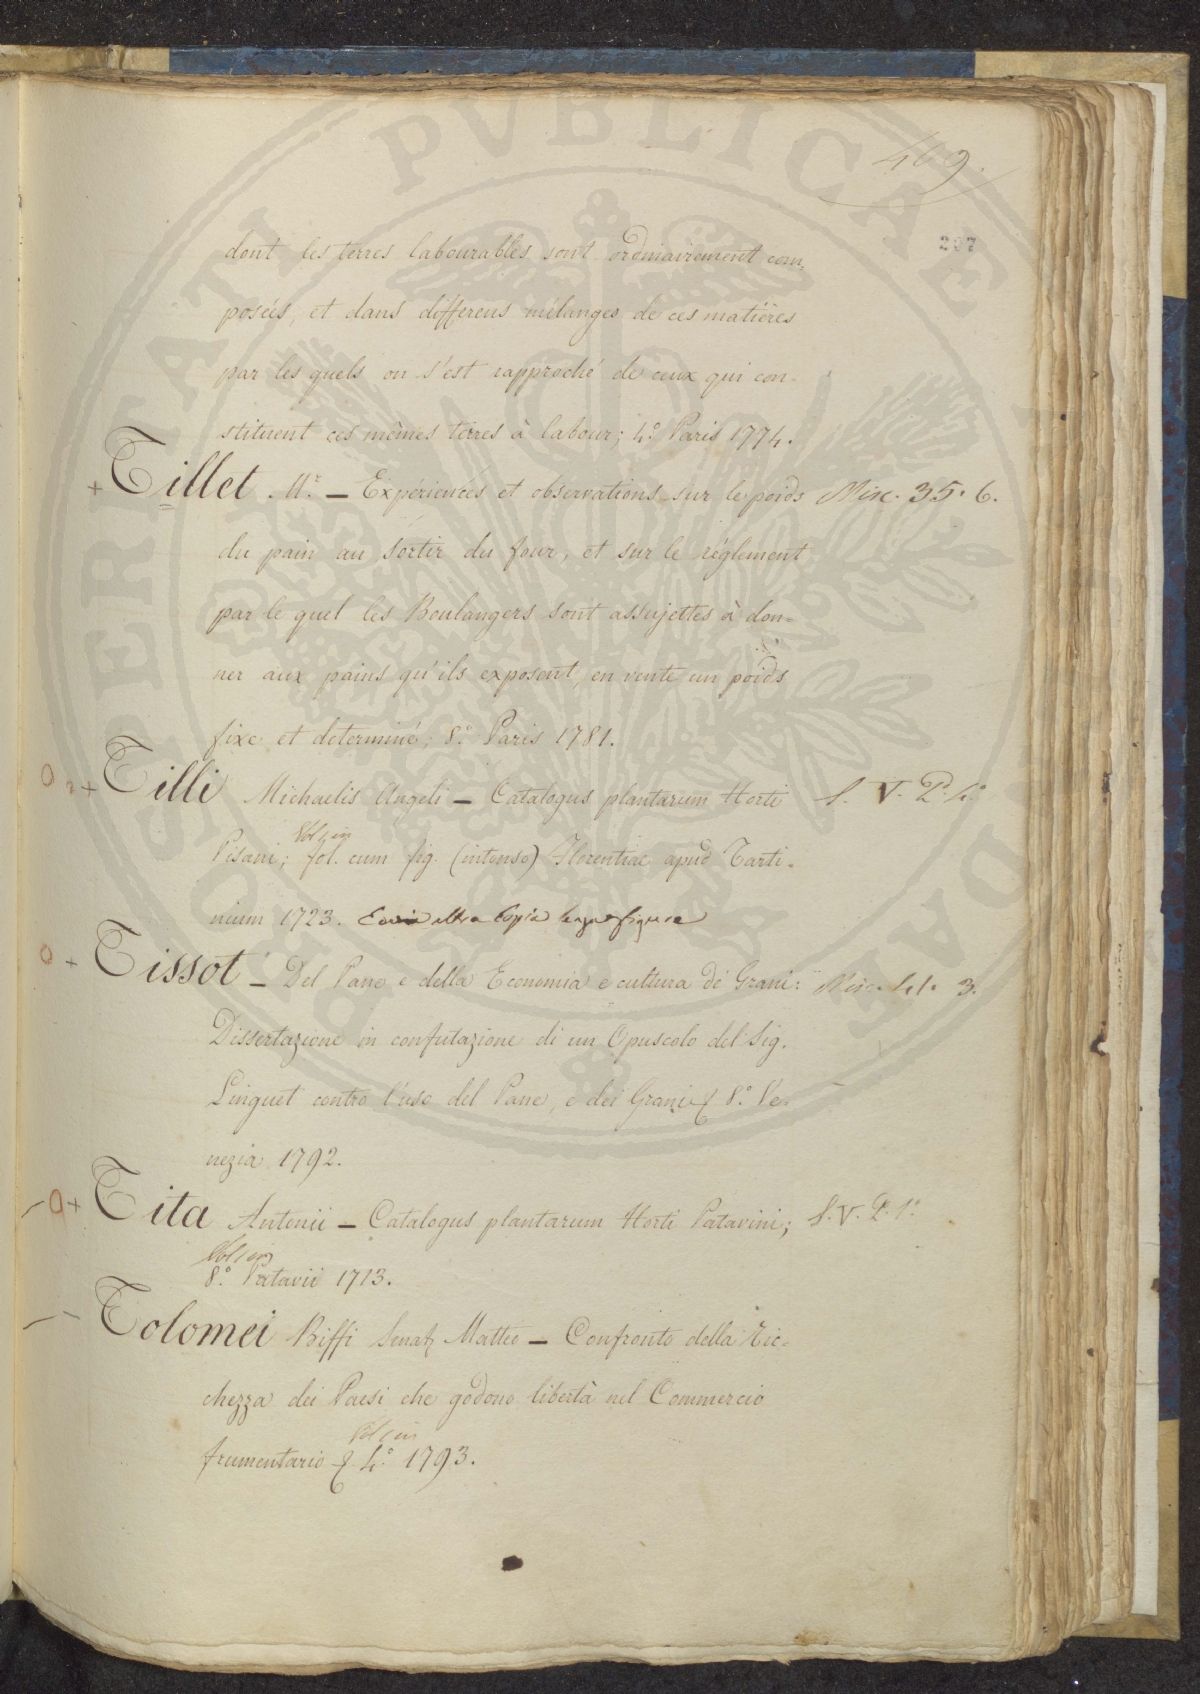 409.
207
dont les terres labourables sont ordinairement com=
posées, et dans differens mélanges de ces matières
par les quels on s'est rapproché de ceux qui con-
stituent ces mêmes terres à labour; 4.º Paris 1774.
+ Tillet. M.r — Expériences et observations sur le poids Misc. 35. 6.
du pain au sortir du four, et sur le réglement
par le quel les Boulangers sont assujettes à don=
ner aux pains qu'ils exposent, en vente un poids
fixe et determiné; 8.º Paris 1781.
O 2 + Tilli Michaelis Angeli — Catalogus plantarum Horti S. V. P. 4.º
Vol. in
Pisani; fol. cum fig. (intonso) Florentiae apud Tarti-
nium 1723. Eovvi altra Copia senza figure
O + Tissot — Del Pane e della Economia e cultura de Grani: Misc. 41. 3.
Dissertazione in confutazione di un Opuscolo del Sig.
Linguet contro l'uso del Pane, e dei Grani 8.º Ve-
nezia 1792.
— O + Tita Antonii — Catalogus plantarum Horti Patavini; S. V. P. 1.º
Vol. in
8.º Patavii 1713.
— Tolomei Biffi Senat. Matteo — Confronto della Ric=
chezza dei Paesi che godono libertà nel Commercio
Vol. in
frumentario 4.º 1793.
PROSPERITATI PVBLICAE AVGENDAE